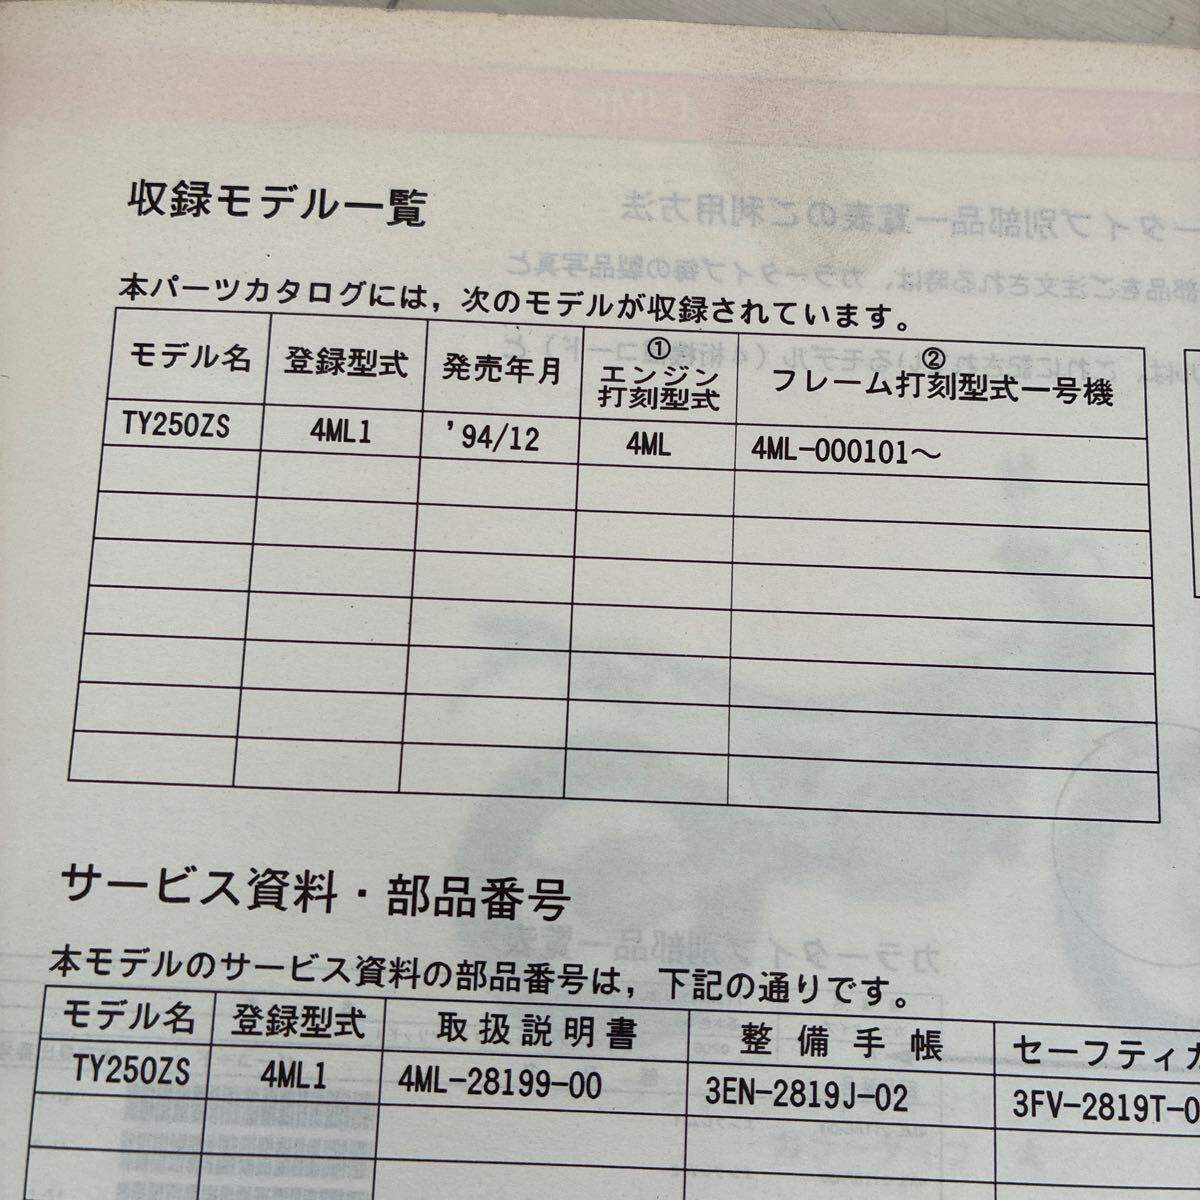 収録モデル一覧
本パーツカタログには，次のモデルが収録されています。
モデル名 登録型式 発売年月 ①エンジン打刻型式 ②フレーム打刻型式一号機
TY250ZS 4ML1 '94/12 4ML 4ML-000101〜
サービス資料・部品番号
本モデルのサービス資料の部品番号は，下記の通りです。
モデル名 登録型式 取扱説明書 整備手帳 セーフティカ
TY250ZS 4ML1 4ML-28199-00 3EN-2819J-02 3FV-2819T-0